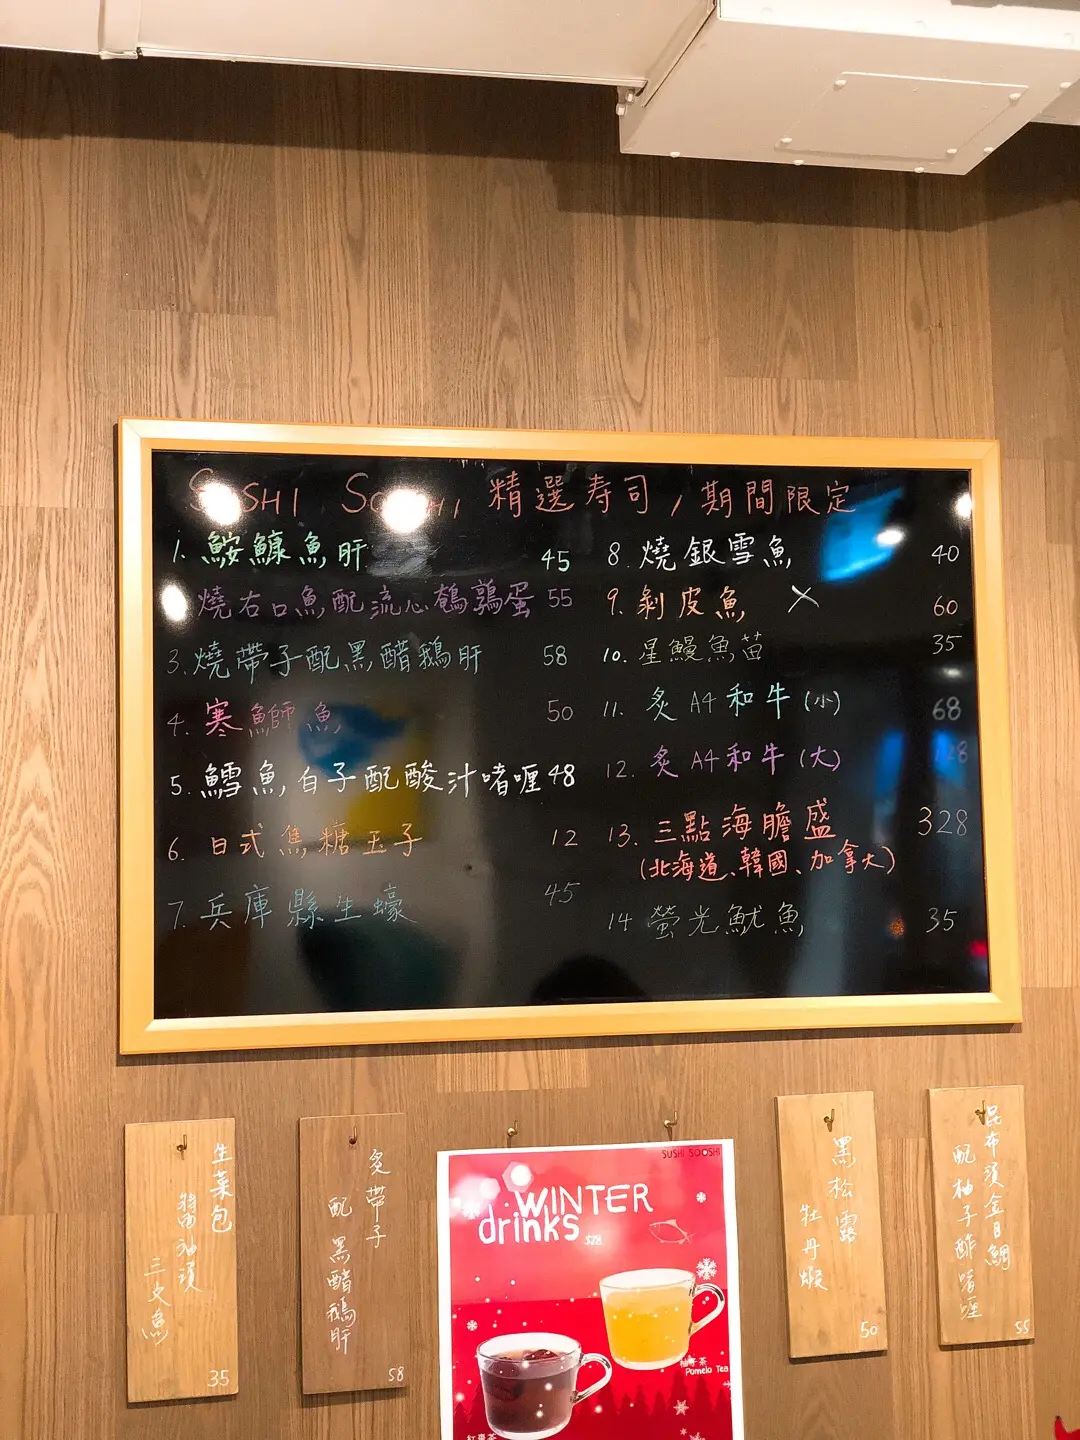 SUSHI SOOSHI 精選寿司/期間限定
1. 鮟鱇魚肝 45
燒右口魚配流心鵪鶉蛋 55
3. 燒帶子配黑醋鵝肝 58
4. 寒鰤魚 50
5. 鱈魚,白子配酸汁啫喱 48
6. 日式焦糖玉子 12
7. 兵庫縣生蠔 45
8. 燒銀雪魚 40
9. 剝皮魚 X 60
10. 星鰻魚苗 35
11. 炙A4和牛(小) 68
12. 炙A4和牛(大)
13. 三點海膽盛 328
(北海道、韓國、加拿大)
14 螢光魷魚 35
生菜包
醬油漬
三文魚
35
炙帶子
配黑醋鵝肝
58
SUSHI SOOSHI
WINTER
drinks
$28
柚子茶
Pomelo Tea
紅棗茶
黑松露
牡丹蝦
50
昆布漬金目鯛
配柚子酢啫喱
55